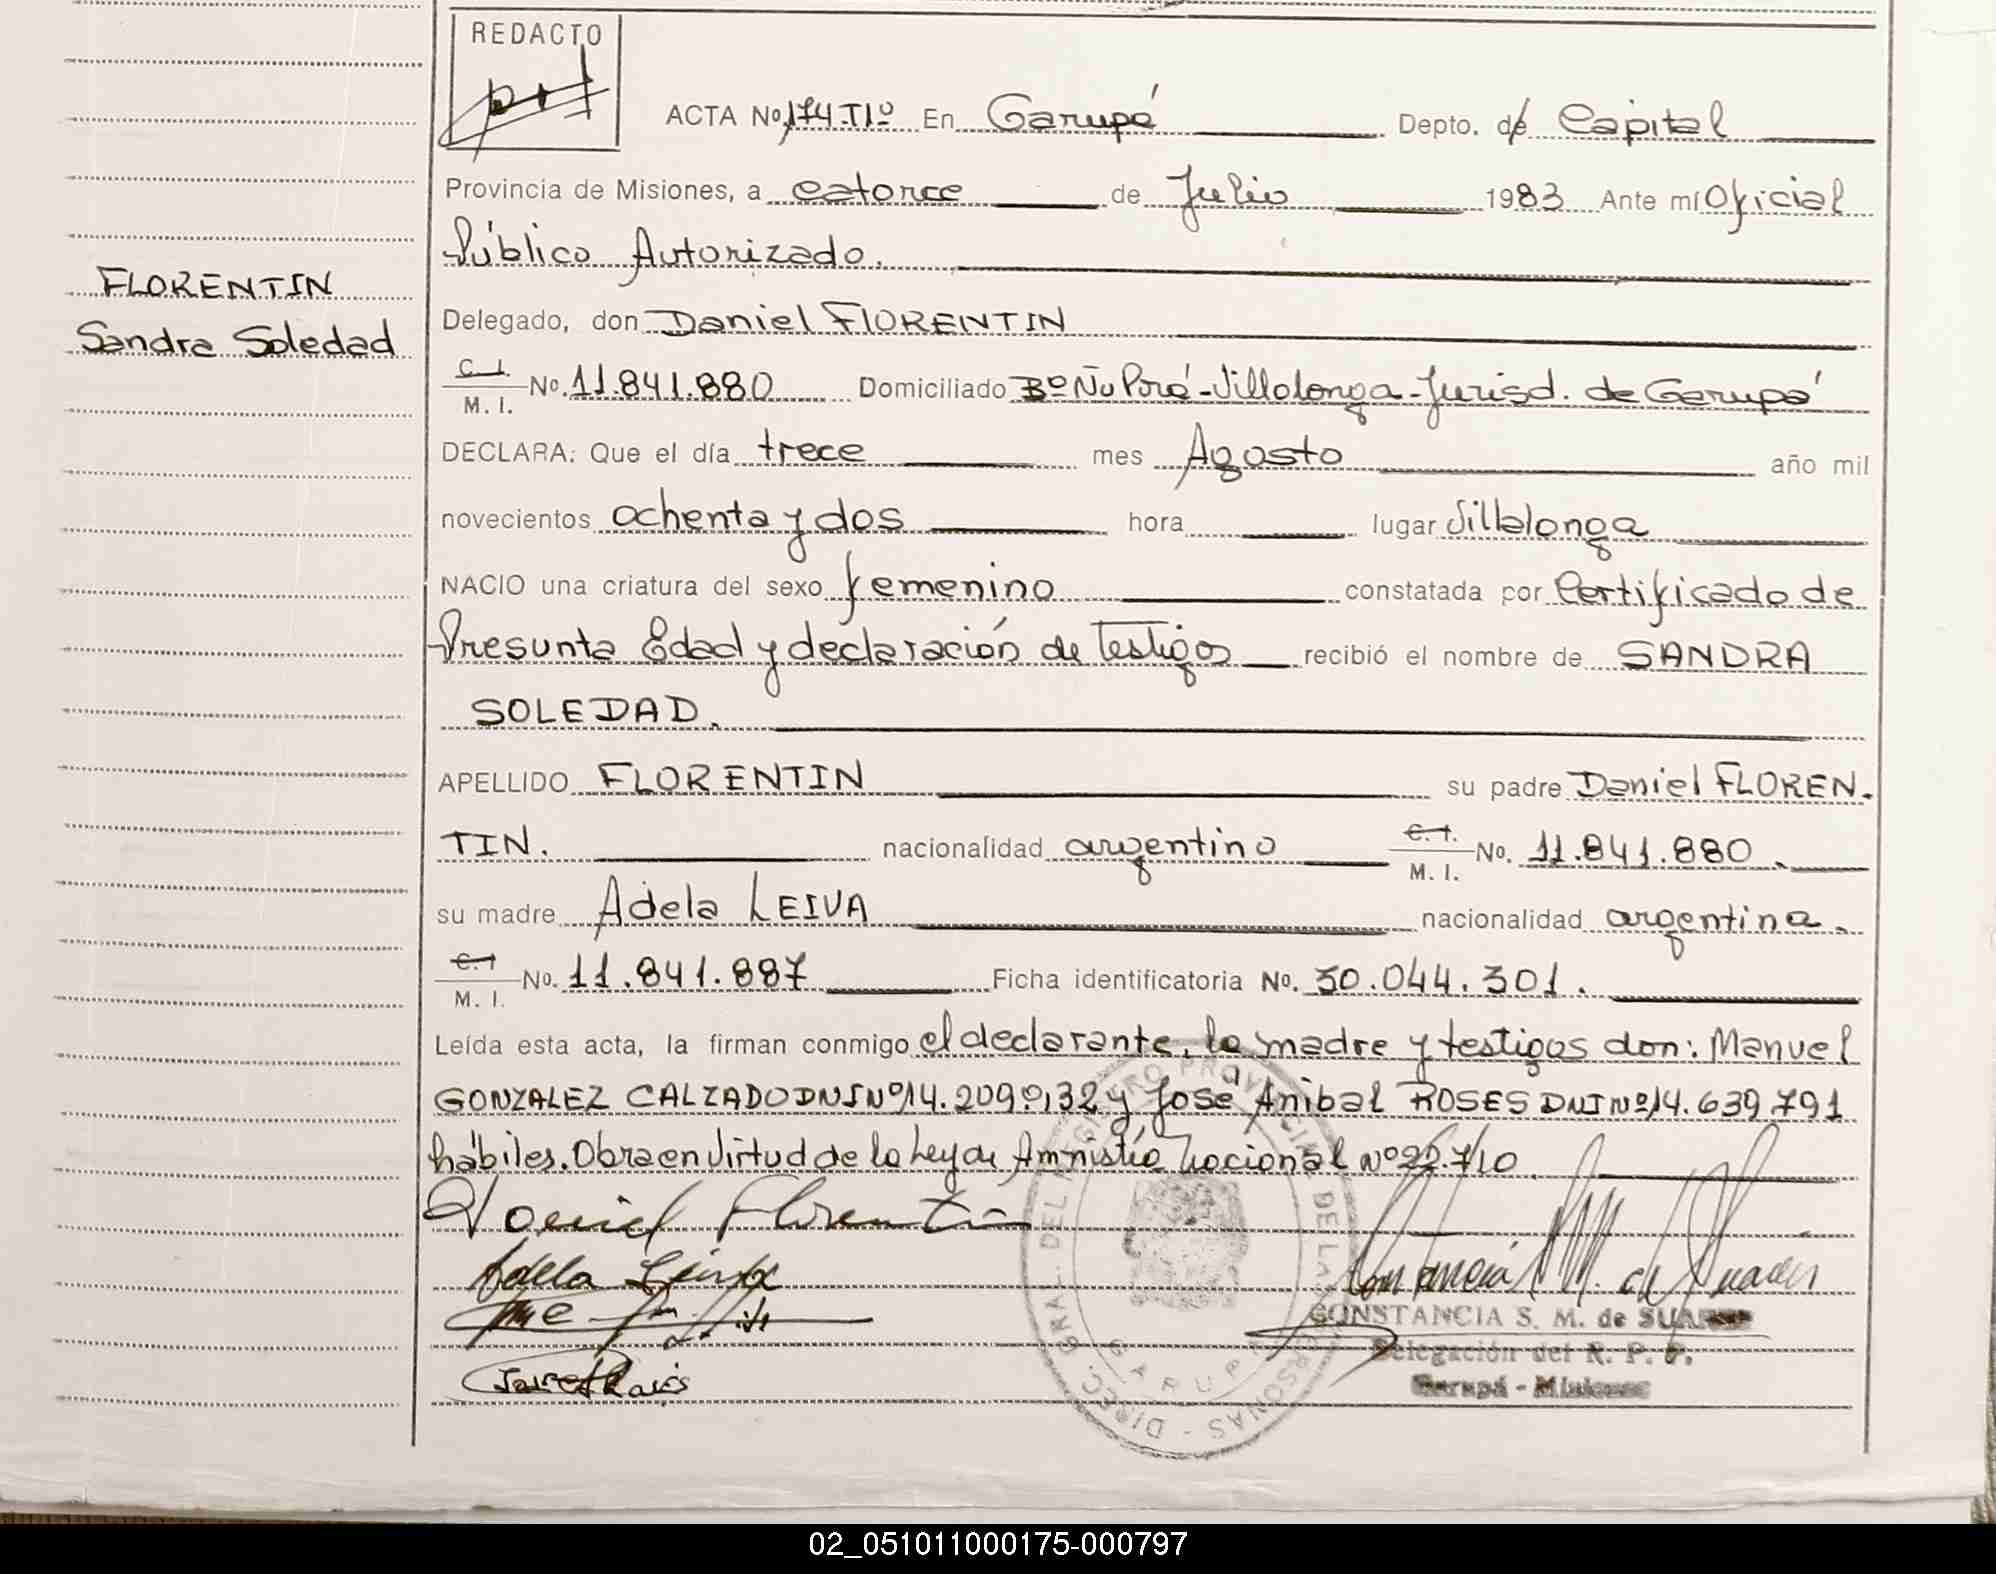 REDACTO
ACTA No 174.T1º En Garupá Depto. de Capital
Provincia de Misiones, a catorce de Julio 1983 Ante mí Oficial
Público Autorizado.
FLORENTIN
Sandra Soledad
Delegado, don Daniel FLORENTIN
C.I.
M. I. No. 11.841.880 Domiciliado Bº Ñu Porá-Villalonga-Jurisd. de Garupá
DECLARA: Que el día trece mes Agosto año mil
novecientos ochenta y dos hora lugar Villalonga
NACIO una criatura del sexo femenino constatada por Certificado de
Presunta Edad y declaración de Testigos recibió el nombre de SANDRA
SOLEDAD.
APELLIDO FLORENTIN su padre Daniel FLOREN.
TIN. nacionalidad argentino C.I. M. I. No. 11.841.880.
su madre Adela LEIVA nacionalidad argentina.
C.I M. I. No. 11.841.887 Ficha identificatoria No. 30.044.301.
Leída esta acta, la firman conmigo el declarante, la madre y testigos don: Manuel
GONZALEZ CALZADO DNI Nº 14.209.032 y José Anibal ROSES DNI Nº 14.639.791
hábiles. Obra en Virtud de la Ley de Amnistía Nacional Nº 22.710
Daniel Florentin
Adela Leiva
Constancia S. M. de Suarez
CONSTANCIA S. M. de SUAREZ
Delegación del R. P. P.
Garupá - Misiones
DIREC. GRAL. DEL REGISTRO PROVINCIAL DE LAS PERSONAS -
GARUPA
02_051011000175-000797